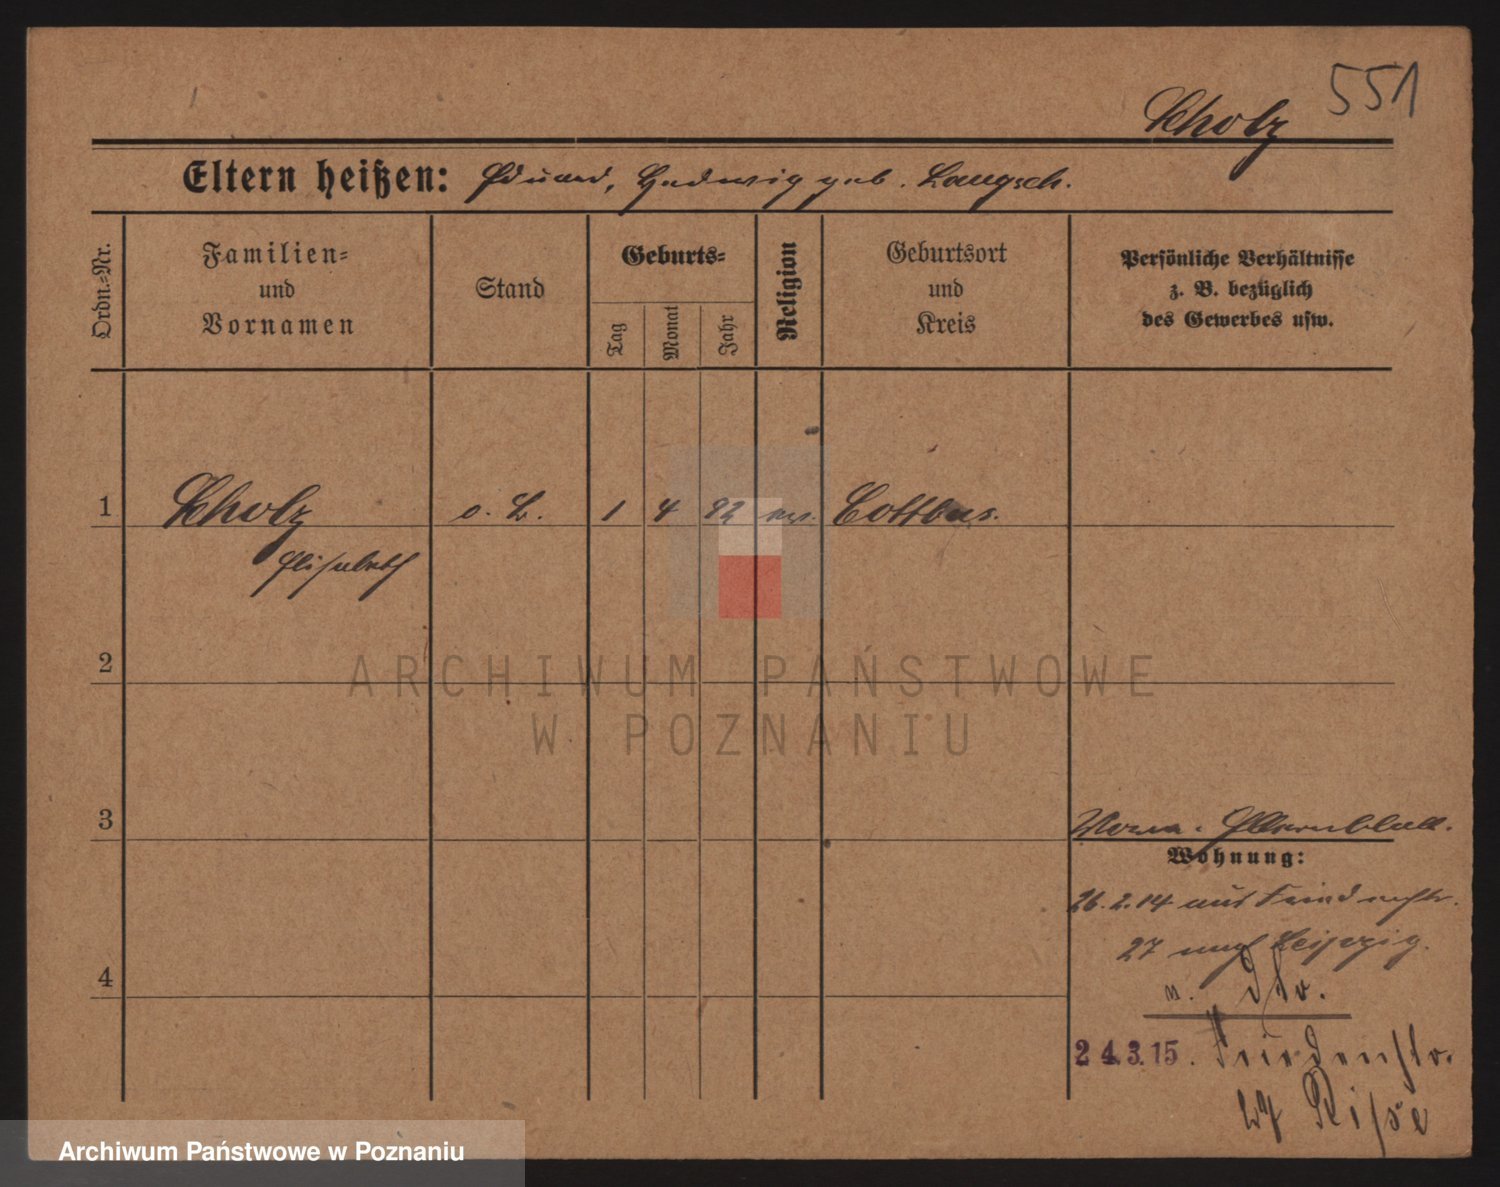 551
Scholz
Eltern heißen: Eduard, Hedwig geb. Langsch.
Ordn.-Nr.
Familien-
und
Vornamen
Stand
Geburts-
Tag
Monat
Jahr
Religion
Geburtsort
und
Kreis
Persönliche Verhältnisse
z. B. bezüglich
des Gewerbes usw.
1 Scholz 1 4 92 ev. Cottbus.
Elisabeth
2
ARCHIWUM PAŃSTWOWE
W POZNANIU
3
Elternblatt.
Wohnung:
26.2.14 aus
27 nach Leipzig.
4
n. dto.
24.3.15. Friedenstr.
27
Archiwum Państwowe w Poznaniu